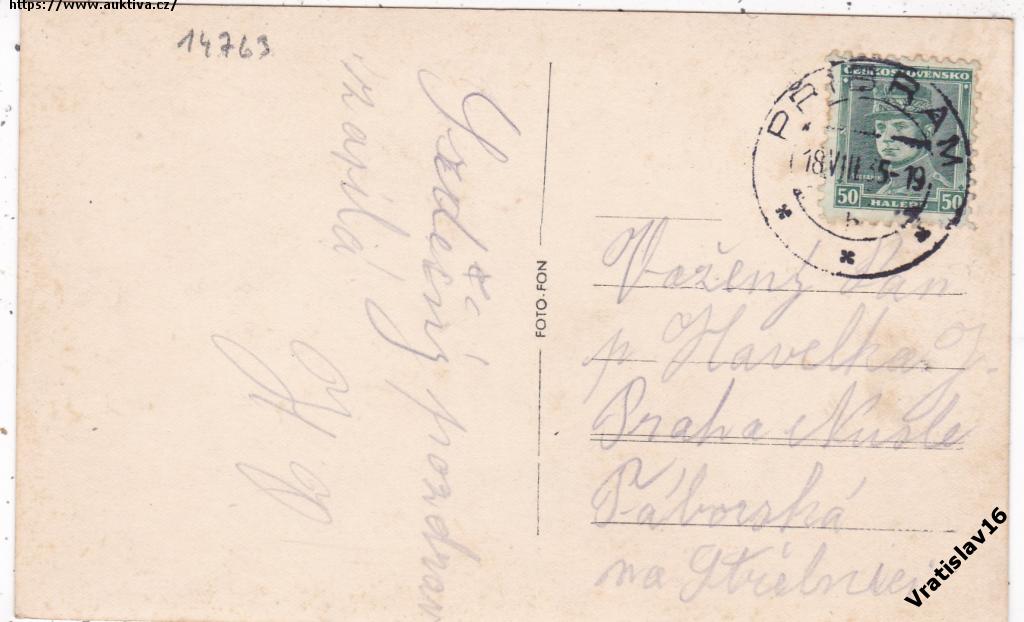 https://www.auktiva.cz/
14763
Srdečný pozdrav
zasílá
FOTO-FON
ČESKOSLOVENSKO
50 HALEŘŮ 50
PŘÍBRAM
18.VIII.35-19
Vážený Pan
p Havelka J.
Praha Nusle
Táborská
na Střelnici
Vratislav16